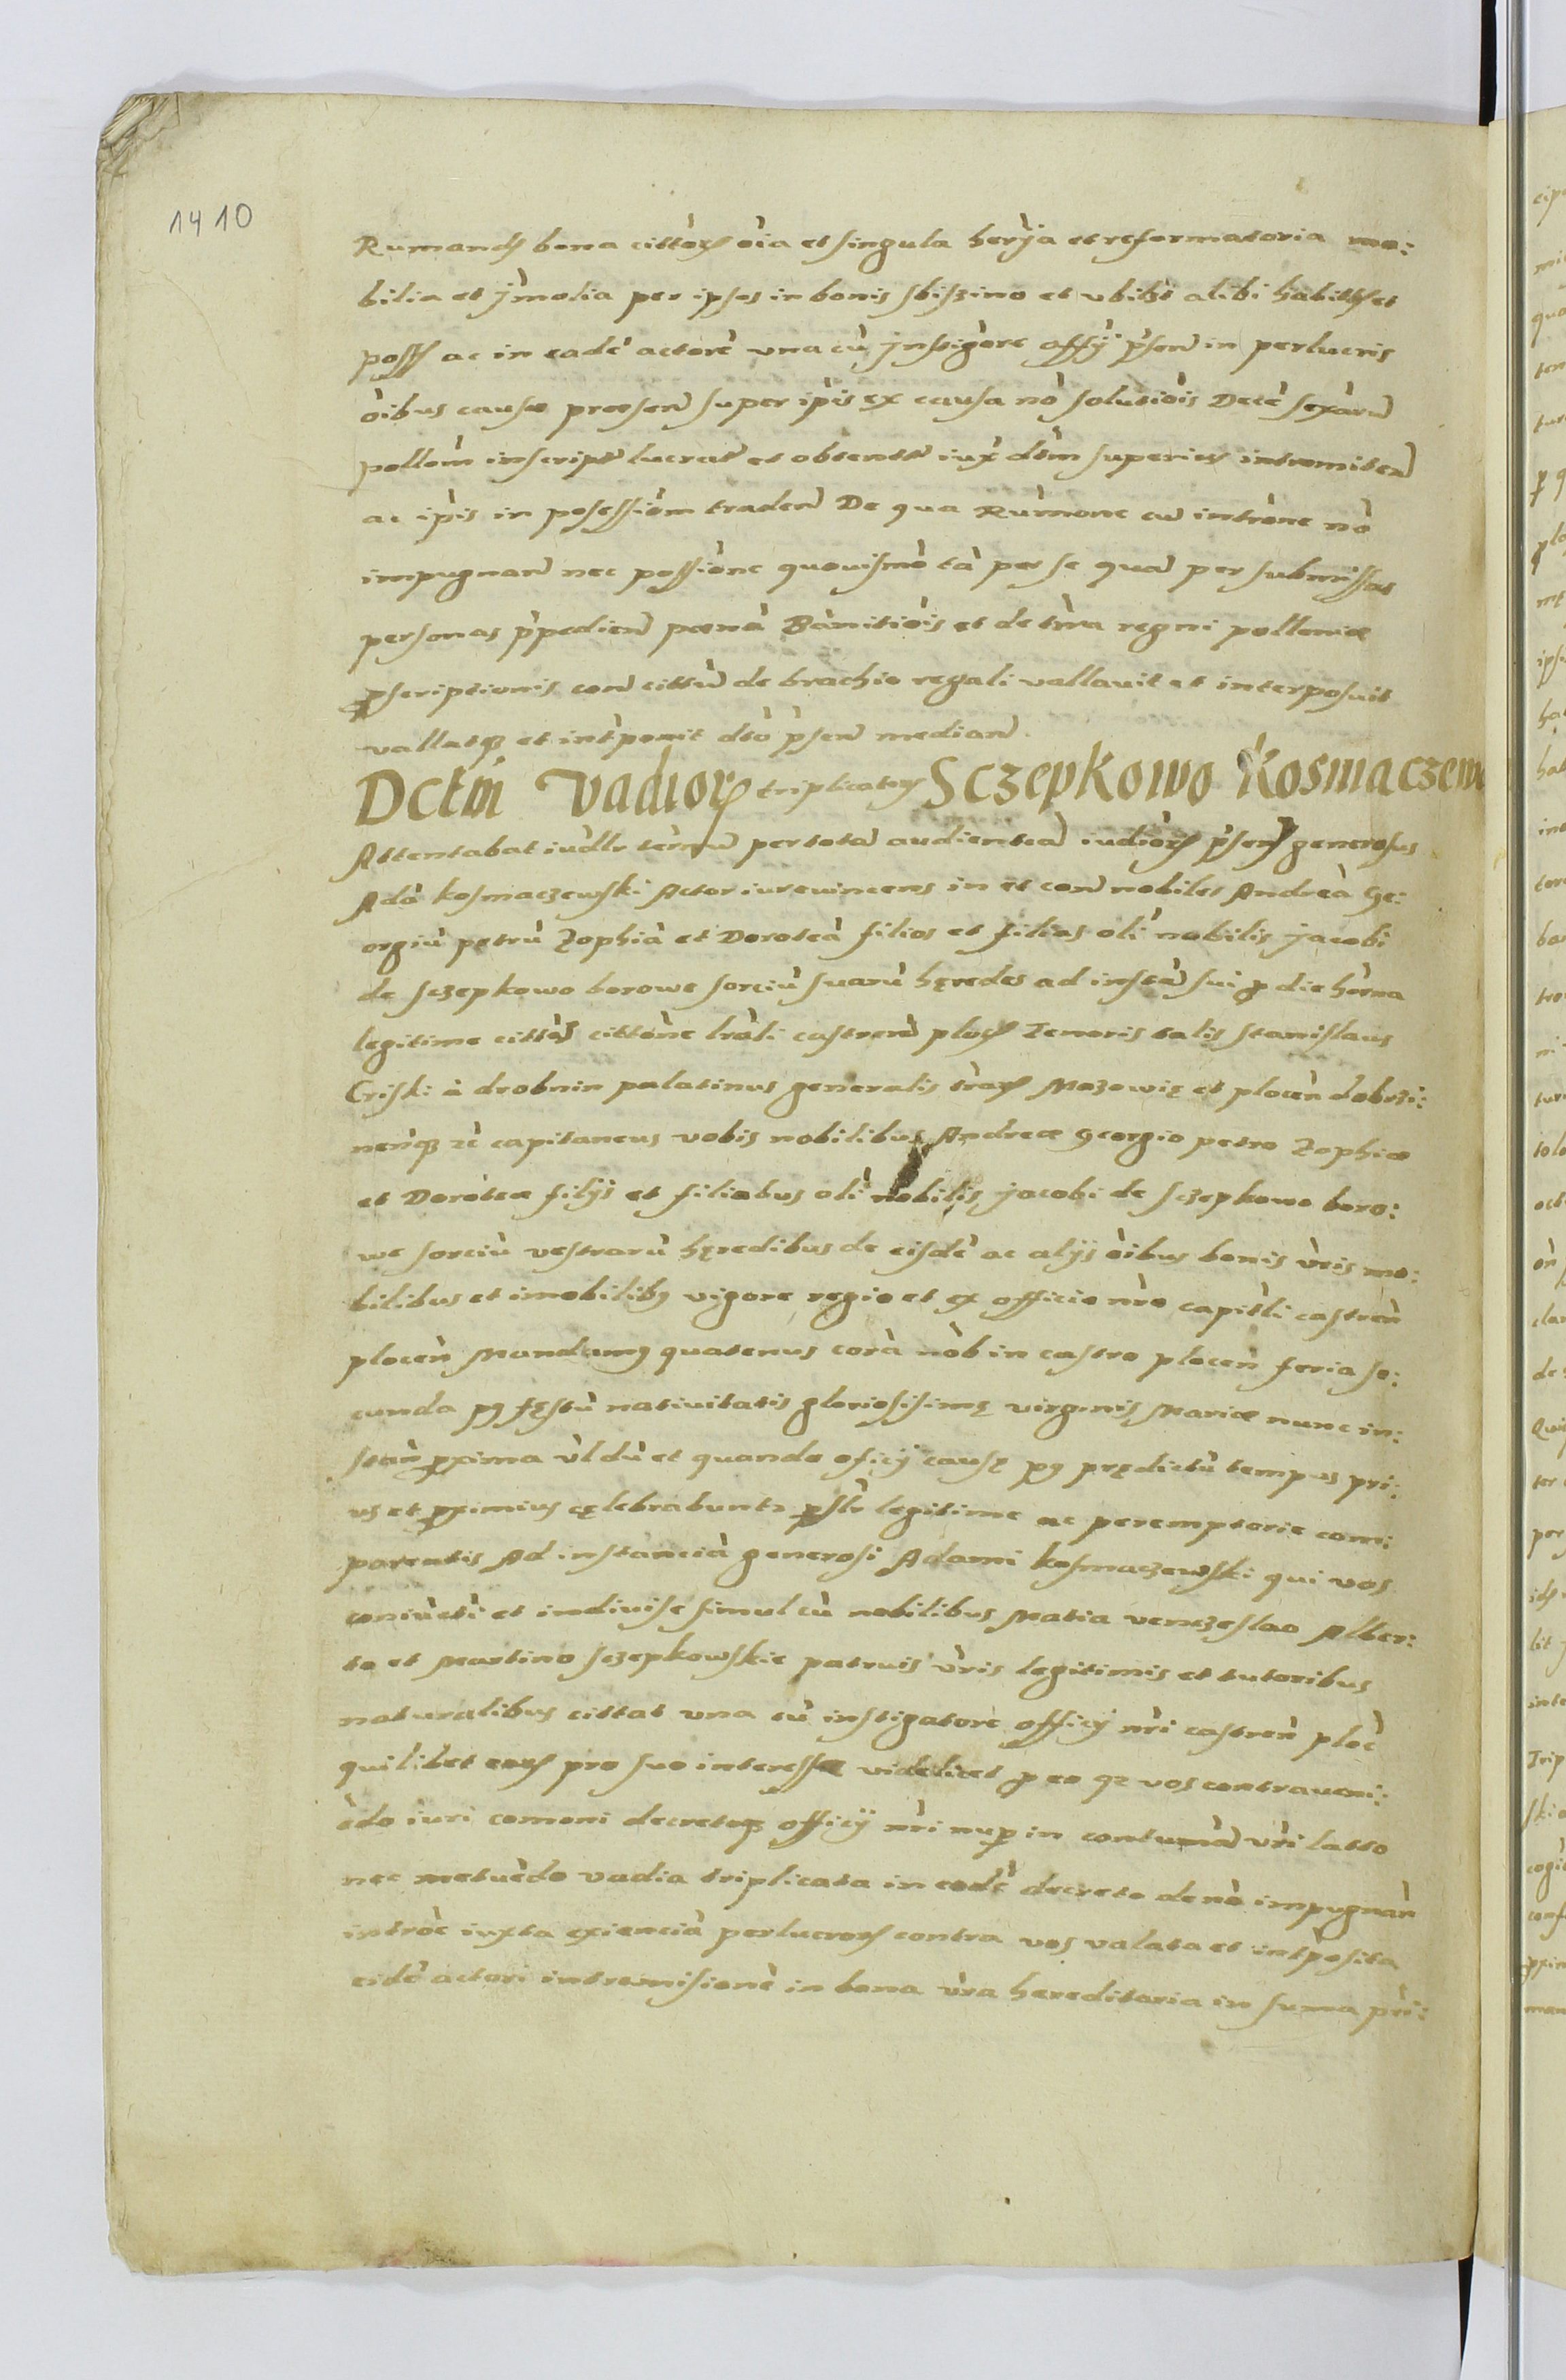 1410
Rumand bona cittor oia et singula herija et reformatoria mo:
bilia et jmolia per ipsos in bonis sbiszino et vbilibet alibi habit et
poss ac in eade actore vna cu jnstigore offÿ psen in perlucris
oibus causæ præsen super ipis ex causa no solutiois Dece sexaru
pollom inscript lucrat et obtent iux dtm superius intromiten
ac ipis in posessiom traden De qua Rumone cu introne no
impugnan nec possione quouismo ta per se qua per submissas
personas ppedien pœna Banitiois et de trra regni polloniæ
pscriptionis con cittu de brachio regali vallauit et interposuit
vallatqz et intponit dto psen median.
Dctm Vadior triplicator Sczepkowo Kosmaczew
Attentabat iudlr ternu per tota audientia iudior psen generosus
Ada kosmaczewski Actor iureuincens in et con nobiles Andrea Ge:
orgiu petru Zophia et Dorotea filios et filias oli nobilis jacobi
de sczepkowo borowe sorciu suaru hęredes ad insta sui p die herna
legitime citta cittone lrali castren ploc Tenoris talis Stanislaus
Criski à drobnin palatinus generalis trar Mazowię et plocen dobrzi:
nenqz zc capitaneus vobis nobilibus Andreæ georgio petro Zophiæ
et Doroteæ filijs et filiabus oli nobilis jacobi de sczepkowo boro:
we sorciu vestraru hęredibus de eisde ac alijs oibus bonis vris mo:
bilibus et imobilibus vigore regio et ex officio nro capitli castren
plocen Mandamus quatenus cora nob in castro plocen feria se:
cunda post fęstu natiuitatis gloriosisimę virginis Mariæ nunc in:
stan pxima vl du et quando oficÿ causę post prędictu tempus pri:
us et pximius cęlebrabuntr pslr legitime ac peremptorie com:
pareatis Ad instancia generosi Adami kosmaczewski qui vos
coniucti et indiuise simul cu nobilibus Matia venczeslao Alber:
to et Martino sczepkowskie patruis vris legitimis et tutoribus
naturalibus cittat vna cu instigatore officÿ nri castren ploc
quilibet eor pro suo interesse videlicet p eo qz vos contraueni:
edo iuri comoni decretoqz officÿ nri nup in contuma vri latto
nec metuedo vadia triplicata in eode decreto de no impugnan
introe iuxta exiencia perlucror contra vos valata et intposita
eide actori intromisione in bona vra hereditaria in suma pri: